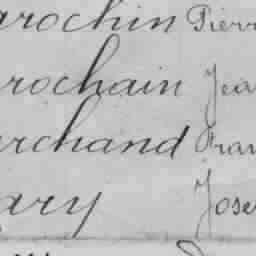 arochin Pierr
rochain Jea
archand Fran
ary Jose